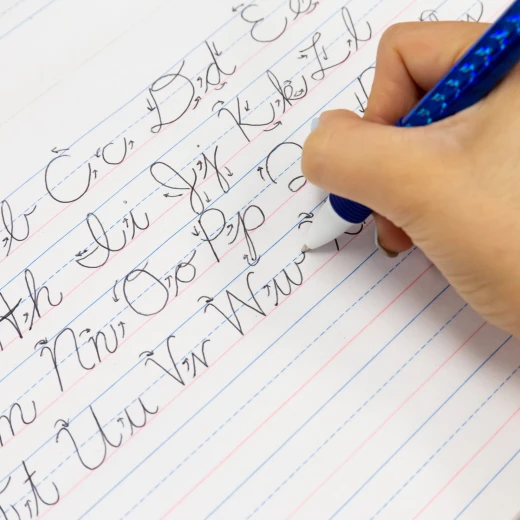 Cc Dd E
h Ii Jj Kk Ll
Nn Oo Pp Q
Tt Uu Vv Ww